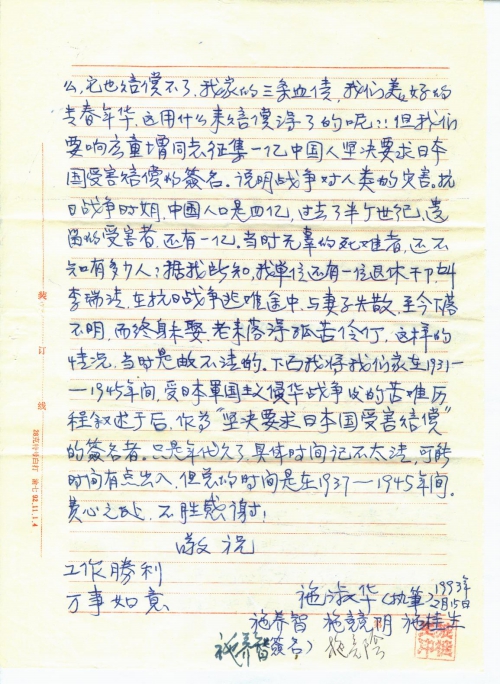 么,它也赔偿不了,我家的三条血债,我们美好的
青春年华,这用什么来赔偿得了的呢?!但我们
要响应童增同志征集一亿中国人坚决要求日本
国受害赔偿的签名。说明战争对人类的灾害。抗
日战争时期,中国人口是四亿,过去了半个世纪,遗
留的受害者,还有一亿,当时无辜的死难者,还不
知有多少人?据我所知,我单位还有一位退休干部,叫
李瑞清,在抗日战争逃难途中,与妻子失散,至今下落
不明,而终身未娶,老来落得孤苦伶仃,这样的
情况,当时是数不清的。下面我将我们家在1931—
—1945年间,受日本軍国主义侵华战争发的苦难历
程叙述于后,作为“坚决要求日本国受害赔偿”
的簽名者。只是年代久了,具体时间记不太清,可能
时间有点出入,但总的时间是在1937—1945年间。
费心之处,不胜感谢!
敬祝
工作勝利
万事如意
施淑华(执筆)1993年2月15日
施养智 施競阴 施桂生
施养智(签名) 施竞陰
装 订 线